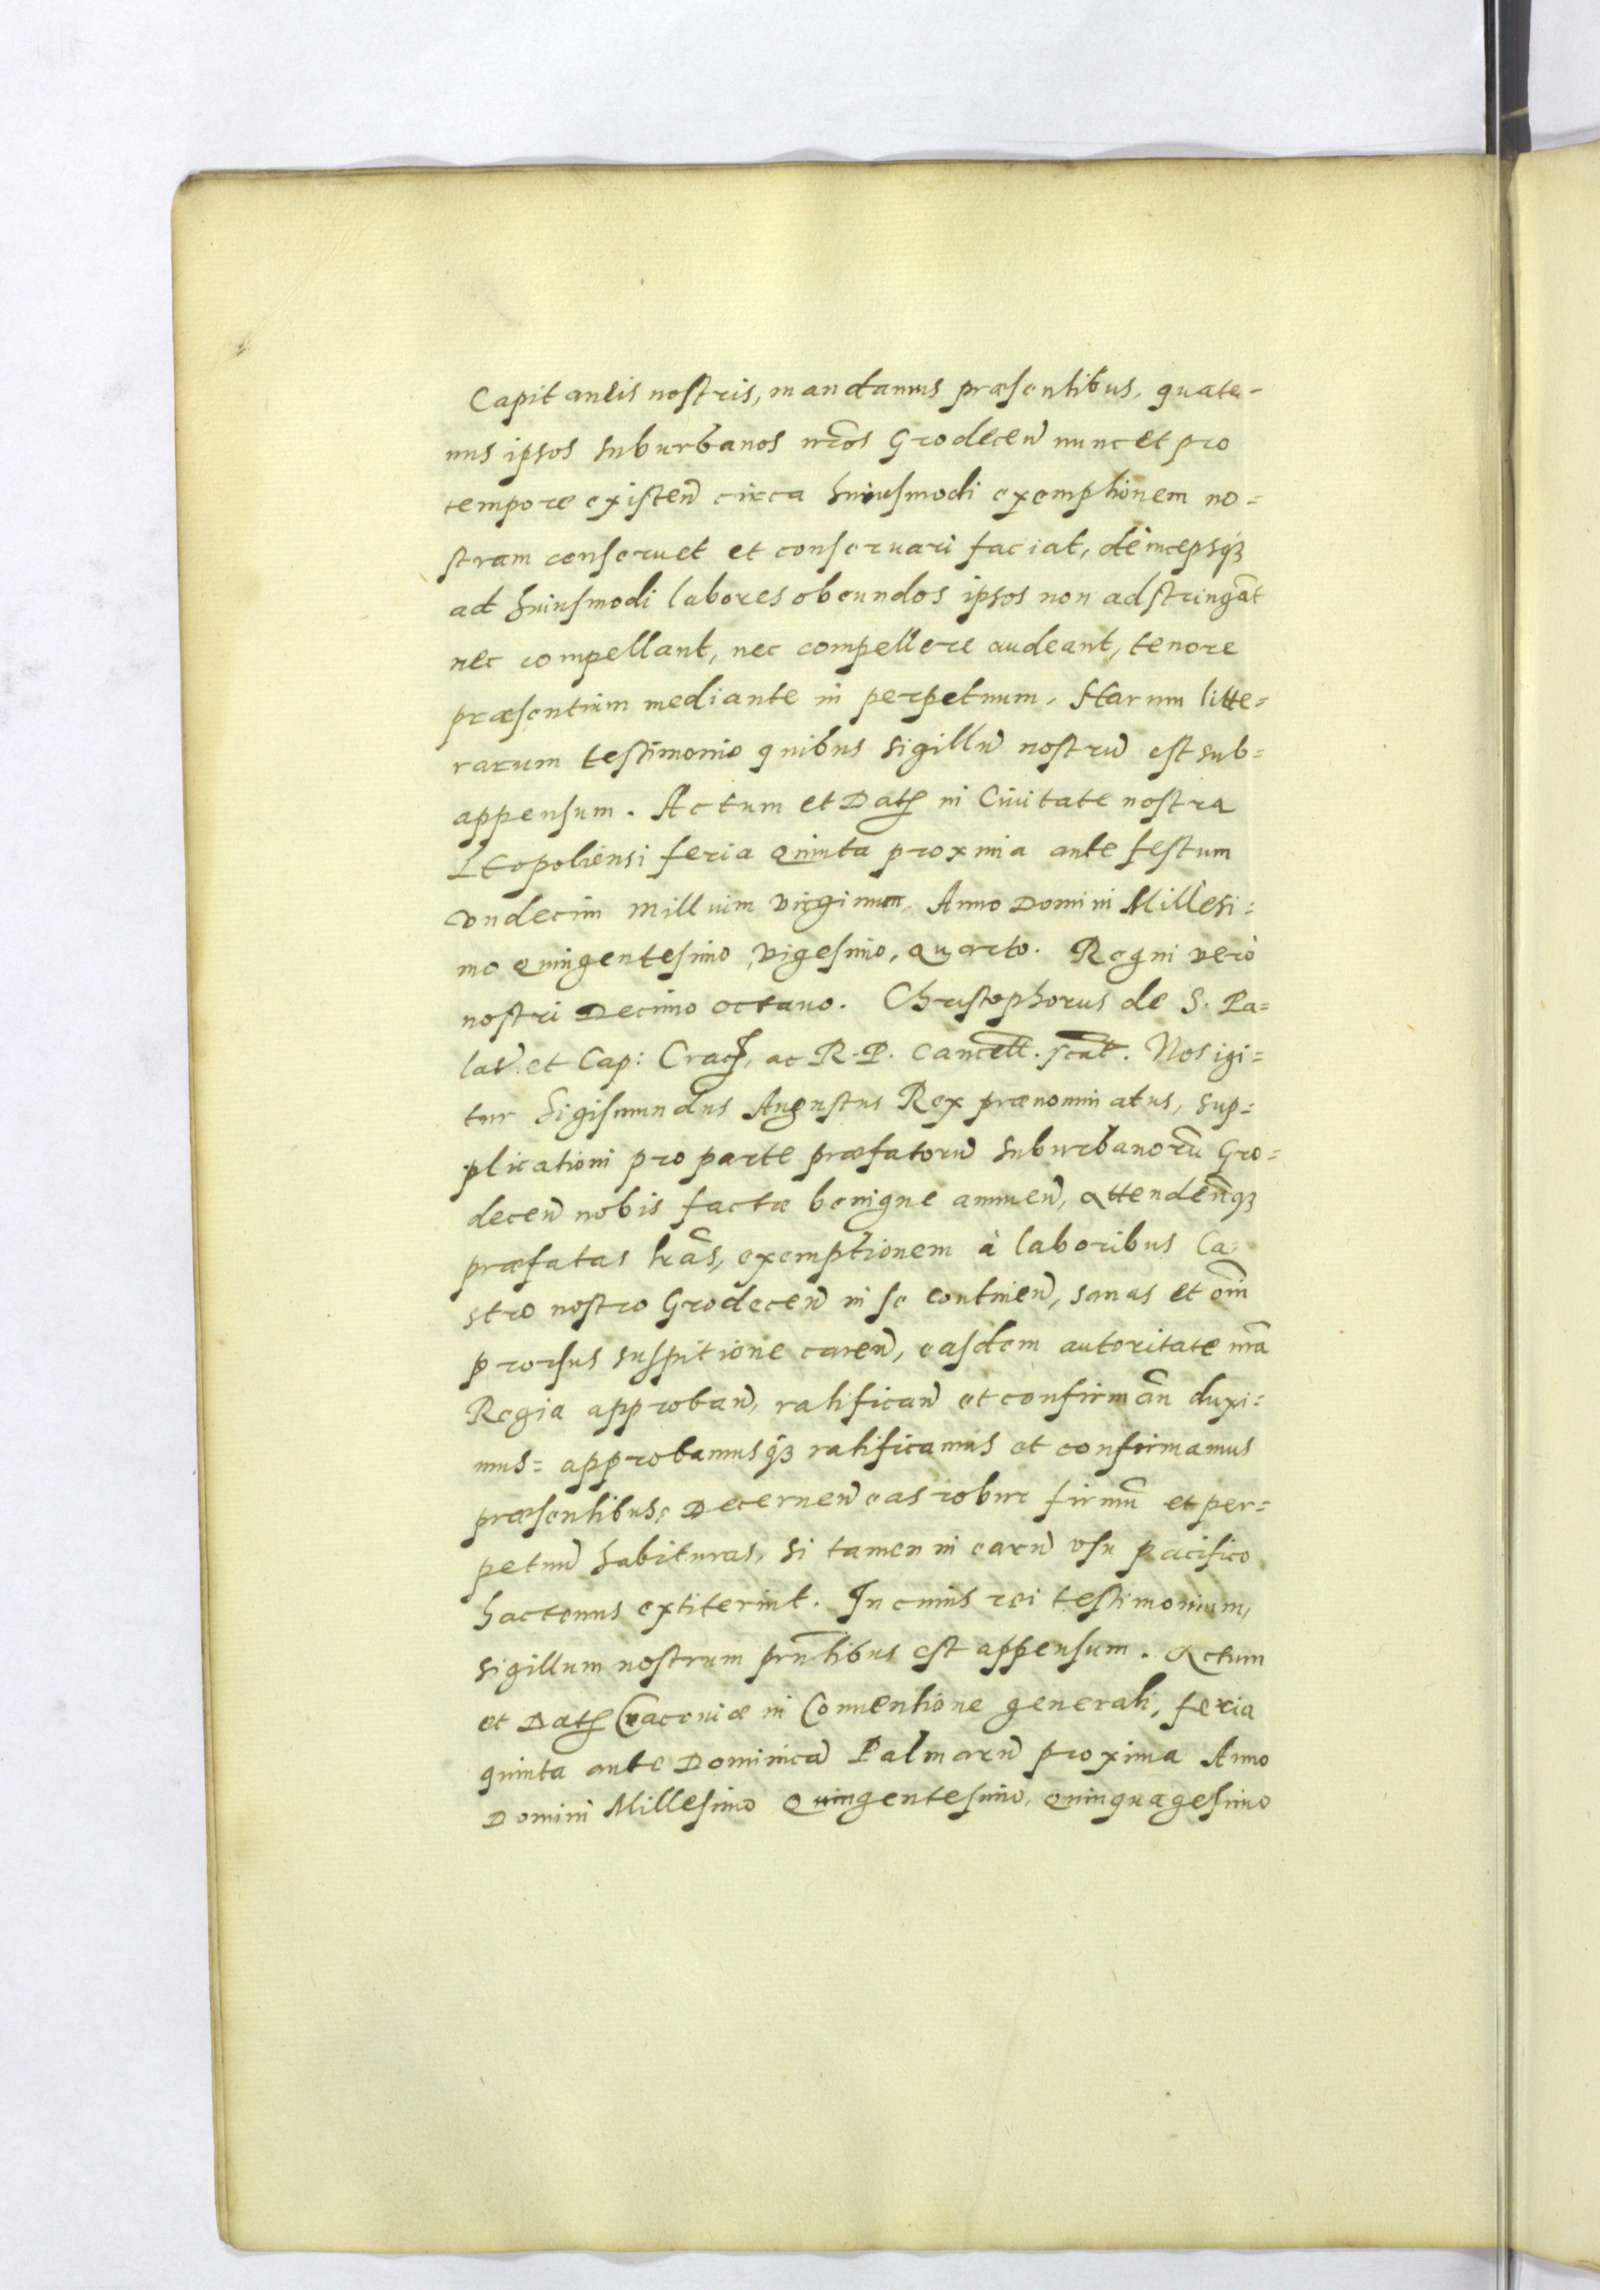 Capitaneis nostris, mandamus præsentibus, quate-
nus ipsos suburbanos nr̃os Grodecen̄ nunc et pro
tempore existen̄ circa huiusmodi exemptionem no=
stram conseruet et conseruari faciat, deincepsq́3
ad huiusmodi labores obeundos ipsos non adstringāt
nec compellant, nec compellere audeant, tenore
præsentium mediante in perpetuum. Harum litte=
rarum testimonio quibus sigillū nostrū est sub=
appensum. Actum et Datʒ in Ciuitate nostra
Leopoliensi feria Quinta proxima ante festum
Vndecim millium virginum. Anno Domini Millesi=
mo Quingentesimo, vigesimo, Quarto. Regni verò
nostri Decimo octauo. Christophorus de S. Pa=
lat̄. et Cap: Cracʒ, ac R. P. Cancell̄. scāt. Nos igi=
tur Sigismundus Augustus Rex prænominatus, sup=
plicationi pro parte præfatorū suburbanorū Gro=
decen̄ nobis factæ benigne annuen̄, attenden̄q3
præfatas lr̃as, exemptionem à laboribus Ca=
stro nostro Grodecen̄ in se continen̄, sanas et om̄i
prorsus suspitione caren̄, easdem autoritate nr̃a
Regia approban̄, ratifican̄ et confirman̄ duxi=
mus= approbamusq́3 ratificamus et confirmamus
præsentibus; Decernen̄ eas robur firmū et per=
petuū habituras, si tamen in earū vsu pacifico
hactenus extiterint. In cuius rei testimonium,
sigillum nostrum prn̄tibus est appensum. Actum
et Datʒ Cracouiæ in Conuentione generali, feria
quinta ante Dominicā Palmarū proxima Anno
Domini Millesimo Quingentesimo, Quinquagesimo